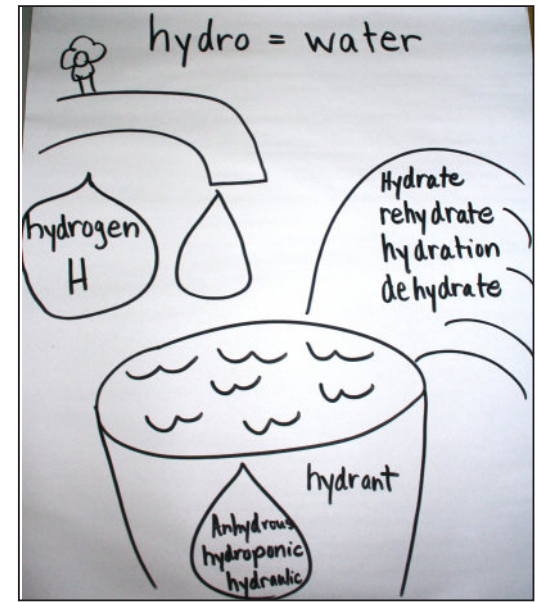 hydro = water
hydrogen
H
Hydrate
rehydrate
hydration
dehydrate
hydrant
Anhydrous
hydroponic
hydraulic